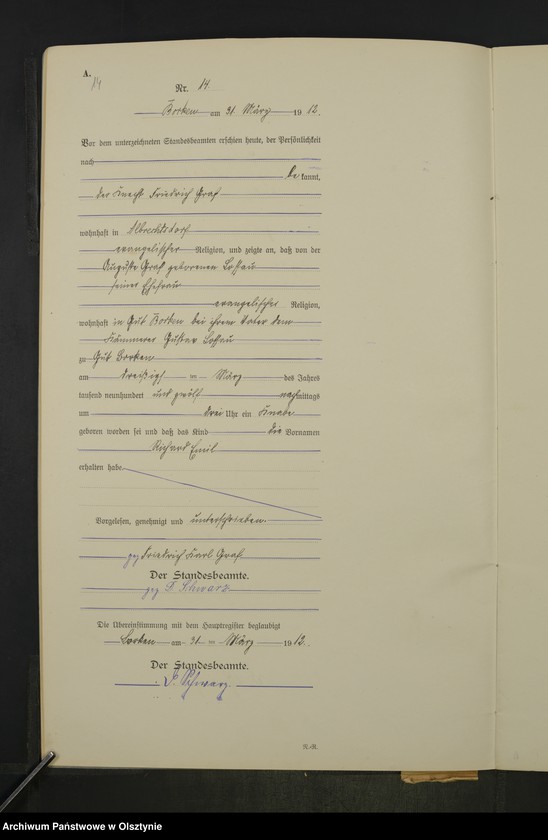 A.
14
Nr. 14
Borken am 31 März 1912.
Vor dem unterzeichneten Standesbeamten erschien heute, der Persönlichkeit
nach
be kannt,
der Knecht Friedrich Graf
wohnhaft in Albrechtsdorf
evangelischer Religion, und zeigte an, daß von der
Auguste Graf geborenen Lossau
seiner Ehefrau
evangelischer Religion,
wohnhaft in Gut Borken bei ihrem Vater dem
Kämmerer Gustav Lossau
zu Gut Borken
am dreißigsten März des Jahres
tausend neunhundert und zwölf nachmittags
um drei Uhr ein Knabe
geboren worden sei und daß das Kind die Vornamen
Richard Emil
erhalten habe
Vorgelesen, genehmigt und unterschrieben.
gez Friedrich Karl Graf
Der Standesbeamte.
gez Schwarz
Die Übereinstimmung mit dem Hauptregister beglaubigt
Borken am 31 März 1912.
Der Standesbeamte.
Schwarz.
N.-R.
Archiwum Państwowe w Olsztynie